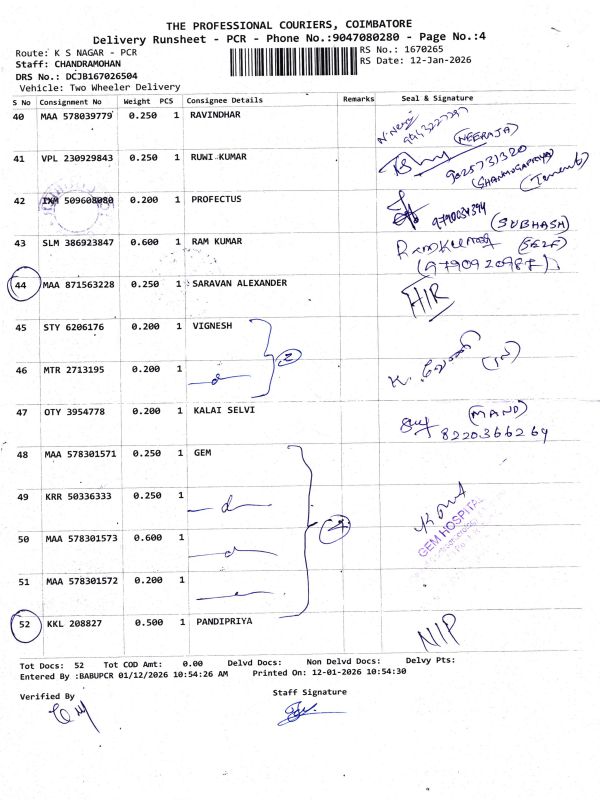 THE PROFESSIONAL COURIERS, COIMBATORE
Delivery Runsheet - PCR - Phone No.:9047080280 - Page No.:4
Route: K S NAGAR - PCR
RS No.: 1670265
Staff: CHANDRAMOHAN
RS Date: 12-Jan-2026
DRS No.: DCJB167026504
Vehicle: Two Wheeler Delivery
S No Consignment No Weight PCS Consignee Details Remarks Seal & Signature
40 MAA 578039779 0.250 1 RAVINDHAR
(NEERAJA)
41 VPL 230929843 0.250 1 RUWI KUMAR
9025731320
(Tenent)
42 509608080 0.200 1 PROFECTUS
(SUBHASH)
43 SLM 386923847 0.600 1 RAM KUMAR
(SELF)
(9790920987)
44 MAA 871563228 0.250 1 SARAVAN ALEXANDER
HIR
45 STY 6206176 0.200 1 VIGNESH
2
(IN)
46 MTR 2713195 0.200 1
47 OTY 3954778 0.200 1 KALAI SELVI
(MAND)
8220366264
48 MAA 578301571 0.250 1 GEM
49 KRR 50336333 0.250 1
GEM HOSPITAL
50 MAA 578301573 0.600 1
51 MAA 578301572 0.200 1
52 KKL 208827 0.500 1 PANDIPRIYA
NIP
Tot Docs: 52 Tot COD Amt: 0.00 Delvd Docs: Non Delvd Docs: Delvy Pts:
Entered By :BABUPCR 01/12/2026 10:54:26 AM Printed On: 12-01-2026 10:54:30
Verified By
Staff Signature